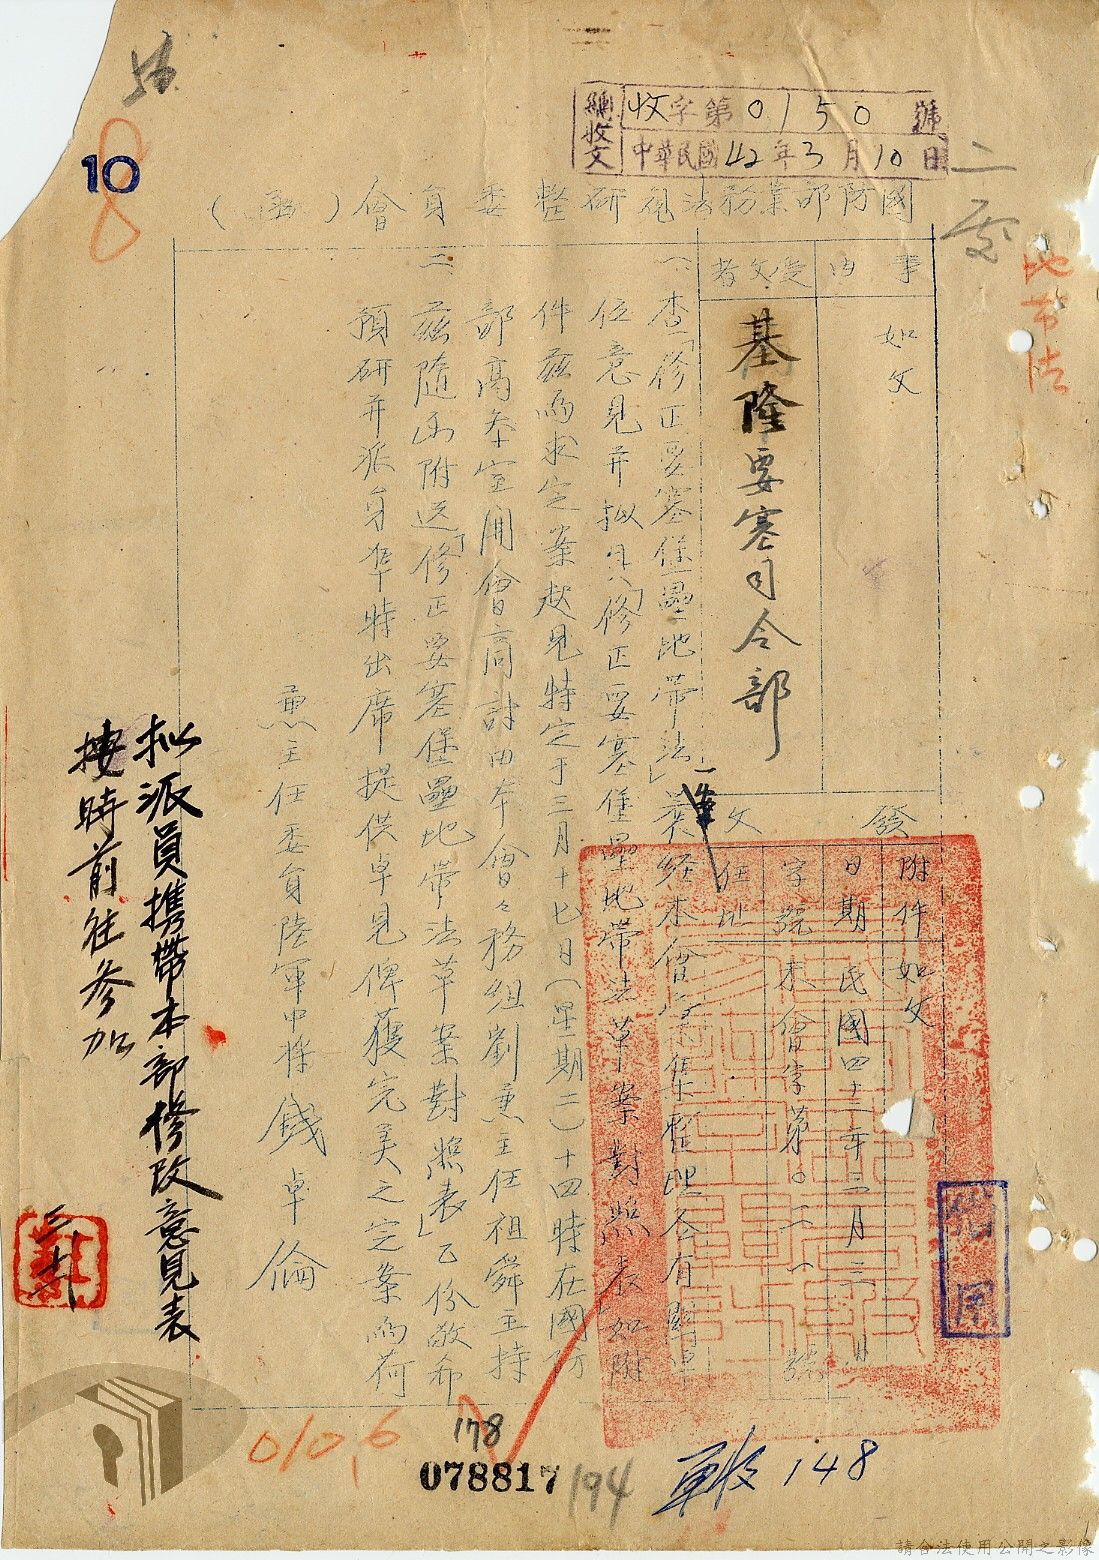 總收文
收字第0150號
中華民國42年3月10日
二處
地帶法
10
國防部業務法規研整委員會(函)
事由
如文
受文者
基隆要塞司令部
發文
附件
如文
日期
民國四十二年三月 日
字號
本會字第〇二一 號
住址
一、查「修正要塞堡壘地帶法」業經本會 集整理各有關單
位意見并拟具「修正要塞堡壘地帶法草案對照表」如附
件茲為求定案起見特定于三月十七日(星期二)十四時在國防
部高參室開會商討由本會會務組劉兼主任祖舜主持
二、茲隨函附送「修正要塞堡壘地帶法草案對照表」乙份敬希
預研并派員準時出席提供卓見俾獲完美之定案為荷
兼主任委員陸軍中將 錢卓倫
拟派員携帶本部修改意見表
按時前往參加
借用
0106
178
078817
194
軍收148
請合法使用公開之影像